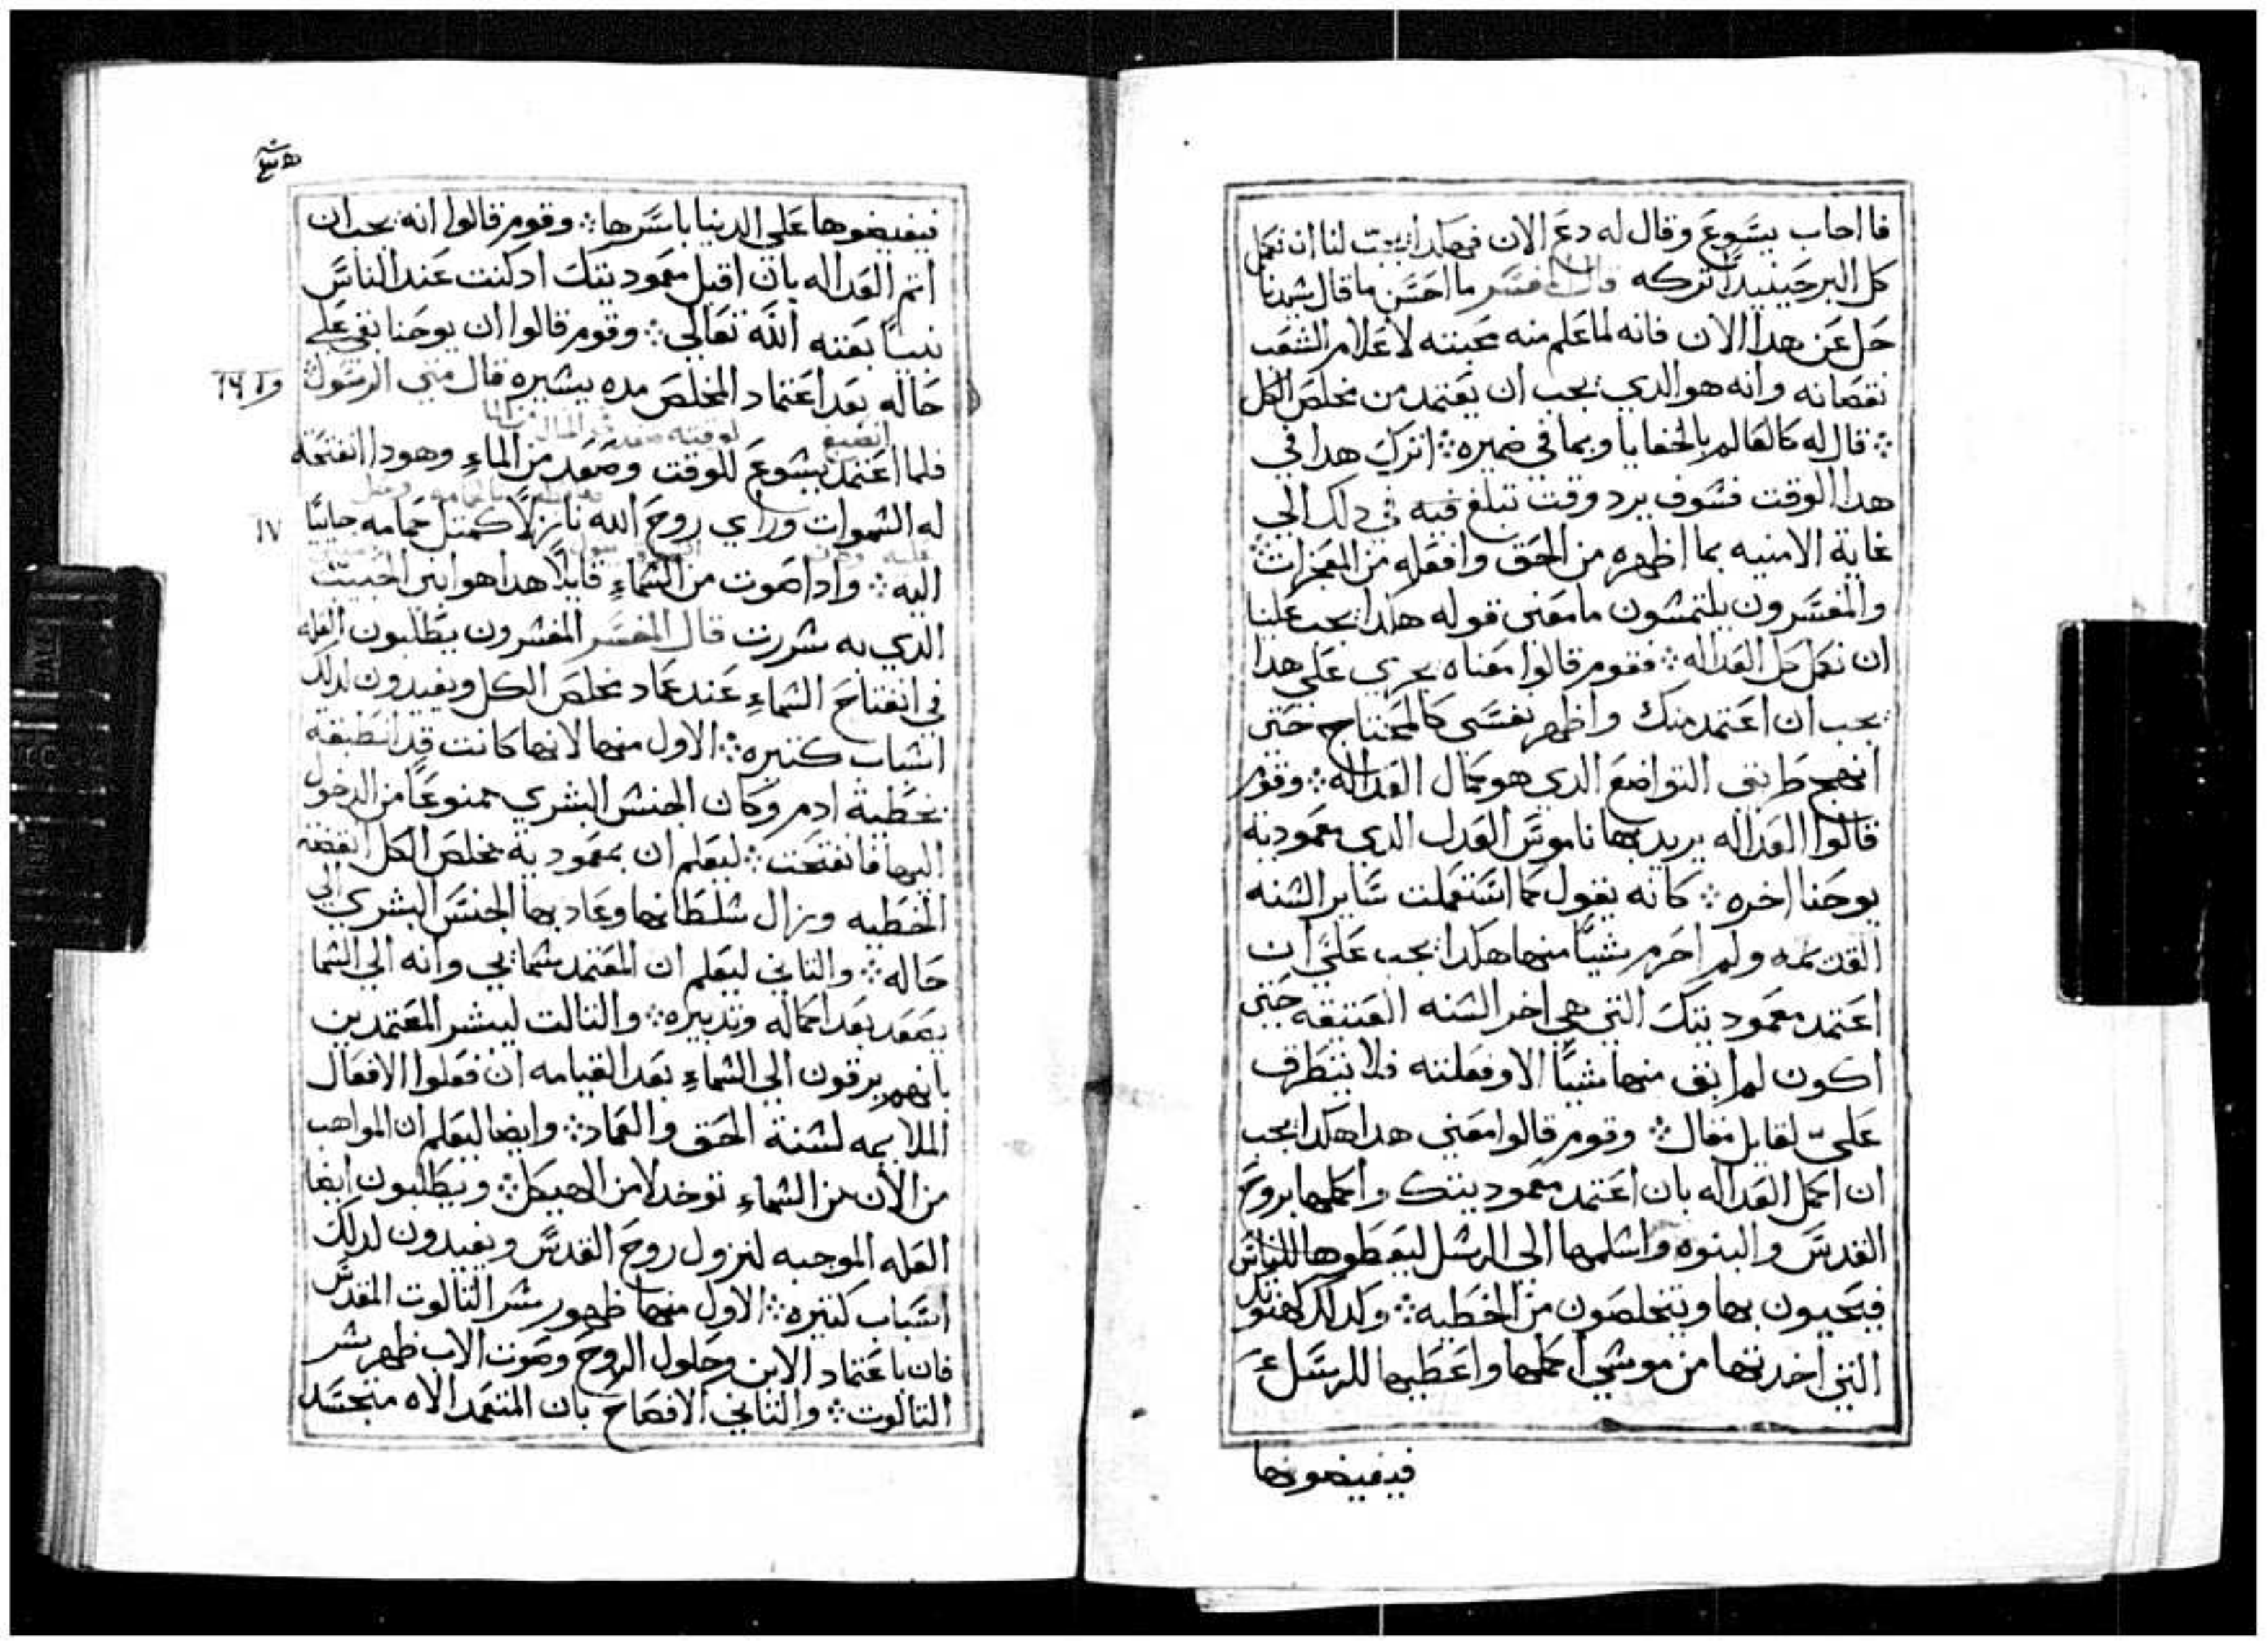 فااجاب يسوع وقال له دع الان فهكدا يجب لنا ان نكمل
كل البر حينيدا تركه قال المفسر ما احسن ما قال سيدنا
حل عن هدا الان فانه لما علم منه محبته لاعلام الشعب
نقصانه وانه هو الدي يجب ان يعتمد من مخلص الكل
܀ قال له كالعالم بالخفايا وبما في ضميره ܀ اترك هدا في
هدا الوقت فسوف يرد وقت تبلغ فيه في دلك الي
غاية الامنيه بما اظهره من الحق وافعله من المعجزات ܀
والمفسرون يلتمسون ما معني قوله هكدا يجب علينا
ان نكمل كل العداله ܀ فقوم قالوا معناه يجري علي هدا
يجب ان اعتمد منك واظهر نفسي كالمحتاج حتي
انهج طريق التواضع الدي هو كمال العداله ܀ وقوم
قالوا العداله يريد بها ناموس العدل الدي معمودية
يوحنا اخره ܀ كانه يقول كما استعملت ساير السنه
القديمه ولم احرم شيا منها هكدا يجب علي ان
اعتمد معموديتك التي هي اخر السنه العتيقه حتي
اكون لم ابق منها شيا الا وفعلته فلا يتطرق
علي لقايل مقال ܀ وقوم قالوا معني هدا هكدا يجب
ان اكمل العداله بان اعتمد معموديتك واكملها بروح
القدس والبنوه واسلمها الي الرسل ليعطوها للناس
فيحيون بها ويتخلصون من الخطيه ܀ وكدلك
التي اخدتها من موسي اكملها واعطيها للرسل
فيفيضونها
فيفيضوها علي الدنيا باسرها ܀ وقوم قالوا انه يجب ان
اتم العداله بان اقبل معموديتك ادكنت عند الناس
نبيا بعته الله تعالي ܀ وقوم قالوا ان يوحنا بقي علي
حاله بعد اعتماد المخلص مده يسيره قال متي الرسول
١٦
انصبغ
فلما اعتمد يسوع للوقت وصعد من الماء وهودا انفتحة
له السموات وراي روح الله نازلا كمتل حمامه جاييا
١٧
اليه ܀ وادا صوت من السماء قايلا هدا هو ابني الحبيب
الدي به سررت قال المفسر المفسرون يطلبون العله
في انفتاح السماء عند عماد مخلص الكل ويفيدون لدلك
اسباب كتيره ܀ الاول منها لانها كانت قد انطبقة
بخطية ادم وكان الجنس البشري ممنوعا من الدخول
اليها فانفتحت ܀ ليعلم ان بمعمودية مخلص الكل
الخطيه وزال سلطانها وعاد بها الجنس البشري الي
حاله ܀ والتاني ليعلم ان المعتمد سمايي وانه الي السما
يصعد بعد اكماله وتدبيره ܀ والتالت ليبشر المعتمدين
بانهم يرقون الي السماء بعد القيامه ان فعلوا الافعال
الملايمه لسنة الحق والعماد ܀ وايضا ليعلم ان المواهب
من الان من السماء توخد لا من الهيكل ܀ ويطلبون ايضا
العله الموجبه لنزول روح القدس ويفيدون لدلك
اسباب كتيره ܀ الاول منها ظهور سر التالوت المقدس
فان باعتماد الابن وحلول الروح وصوت الاب ظهر سر
التالوت ܀ والتاني الافصاح بان المتعمد الاه متجسد